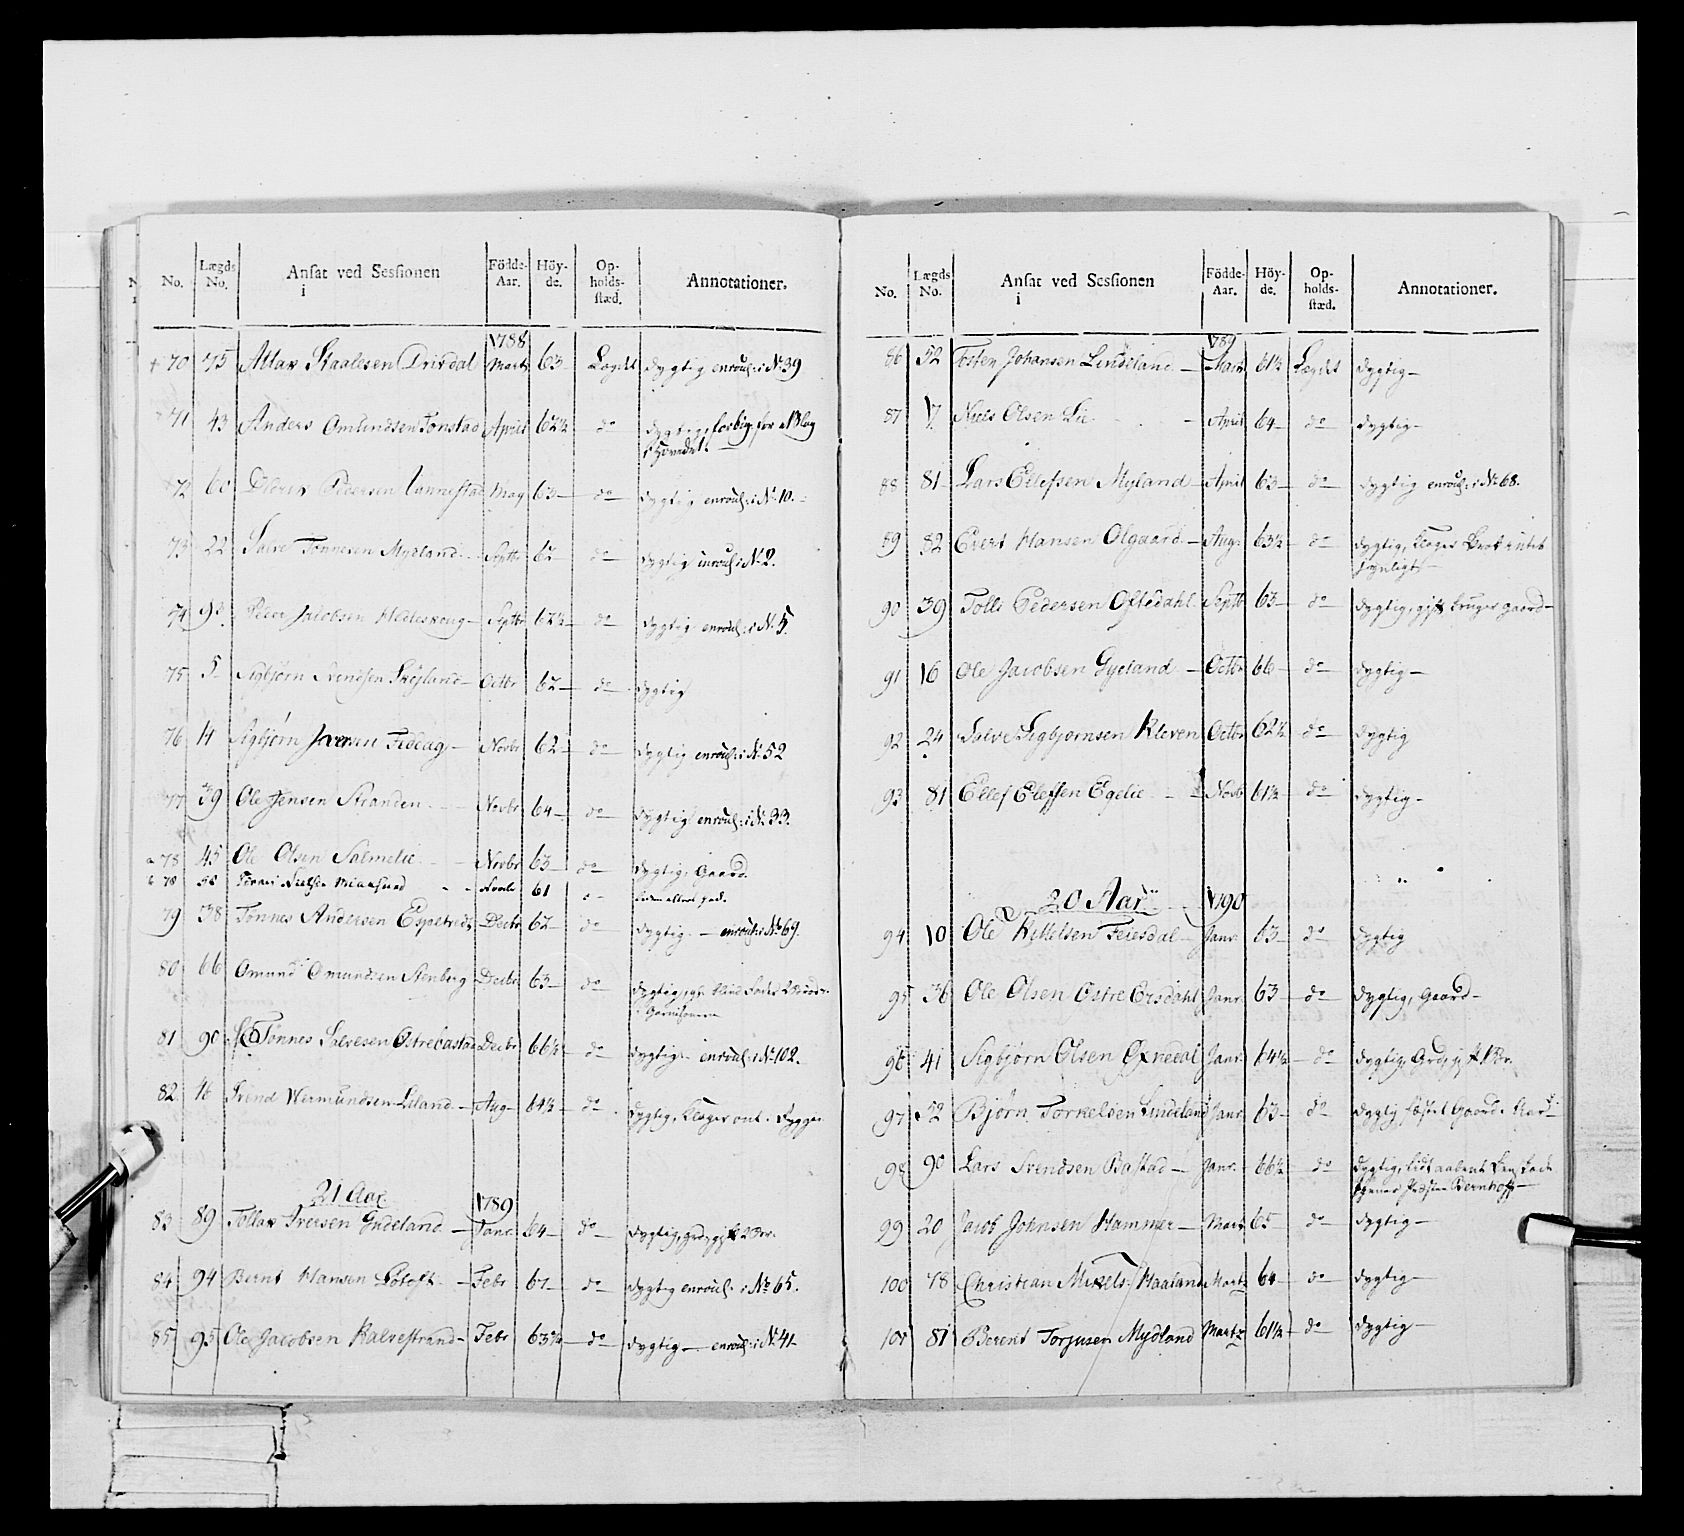 No. Lægds No. Ansat ved Sessionen i Födde-Aar. Höy-de. Op-holds-stæd. Annotationer.
1788
70 75 Attak Staalesen Drivdal Martz 63 Lægdet dygtig enroul: i No 39
71 43 Anders Omundsen Tonstad April 62½ do dygtig, forbig. for
i Hovedet.
72 60 Pedersen May 63 do dygtig enroul: i No 10.
73 22 Salve Tonnesen Mydland Septbr 62 do dygtig enroul: i No 2.
74 93 Peder Jacobsen Septbr 62½ do dygtig enroul: i No 5.
75 5 Sigbjørn Svendsen Octbr 62 do dygtig
76 14 Sigbjørn Iversen Novbr 62 do dygtig enroul: i No 52
77 39 Ole Jensen Stranden Novbr 64 do dygtig enroul: i No 33.
a 78 45 Ole Olsen Salmelie Novbr 63 do dygtig, Gaard.
b 78 58 Novbr 61
79 38 Tonnes Andersen Decbr 62 do dygtig enroul: i No 69.
80 66 Omund Omundsen Stenberg Decbr 63 do dygtig,
81 90 Tønnes Salvesen Decbr 66½ do dygtig enroul: i No 102.
82 16 Svend Wermundsen Liland Aug 61½ do dygtig, klager ont i Ryggen
21 Aar 1789
83 89 Tollak Iversen Gudeland Janr 64 do dygtig, grd, gift 2 Br.
84 94 Bernt Hansen Febr 61 do dygtig enroul: i No 65.
85 95 Ole Jacobsen Kalvestrand Febr 63½ do dygtig enroul: i No 41
No. Lægds No. Ansat ved Sessionen i Födde-Aar. Höy-de. Op-holds-stæd. Annotationer.
1789
86 52 Tosten Johansen Lindeland 61½ Lægdet dygtig
87 7 Niels Olsen Lie April 64 do dygtig
88 81 Lars Ellefsen Myland April 63 do dygtig enroul: i No 68.
89 82 Evert Hansen Olgaard Aug. 63½ do dygtig, klager Brok intet
synligt
90 39 Tolle Pedersen Oftedahl Septb 63 do dygtig, gift bruger gaard
91 16 Ole Jacobsen Gyeland Octbr 66 do dygtig
92 24 Salve Sigbjørnsen Kleven Octbr 62½ do dygtig
93 81 Ellef Eleffsen Egelie Novb 61½ do dygtig
20 Aar 1790
94 10 Ole Kittelsen Feiesdal Janr 63 do dygtig
95 36 Ole Olsen Østre Eisdahl Janr 63 do dygtig, Gaard
96 41 Sigbjørn Olsen Oxnedal Janr 64½ do dygtig, Grd, gift 1 Br.
97 52 Bjørn Torkelsen Lindeland Janr 63 do dygtig fæstet Gaard
98 90 Lars Svendsen Bastad Janr. 66½ do dygtig,
tjener Præsten Bernhoft
99 20 Jacob Johnsen Hammer Mart 65 do dygtig
100 78 Christian Mikels. Haaland Mart 64 do dygtig
101 81 Berent Torjusen Mydland Martz 61½ do dygtig